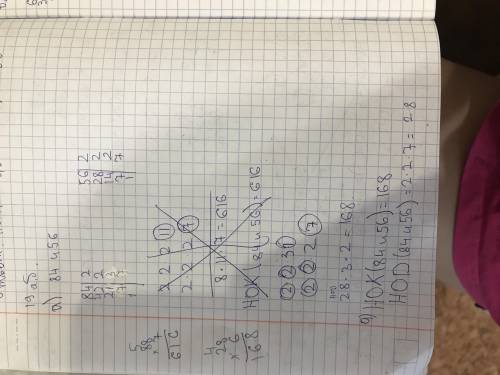 19
а,б.
а) 84 и 56
84 2
42 2
21 3
7 7
1
56 2
28 2
14 2
7 7
1
2 2 2 11
2 2 2 7
8 · 11 · 7 = 616
НОК (84 и 56) = 616
2 2 3
2 2 2 7
28 · 3 · 2 = 168
НОК (84 и 56) = 168
НОD (84 и 56) = 2 · 2 · 7 = 28
5
88
× 7
616
4
28
× 6
168